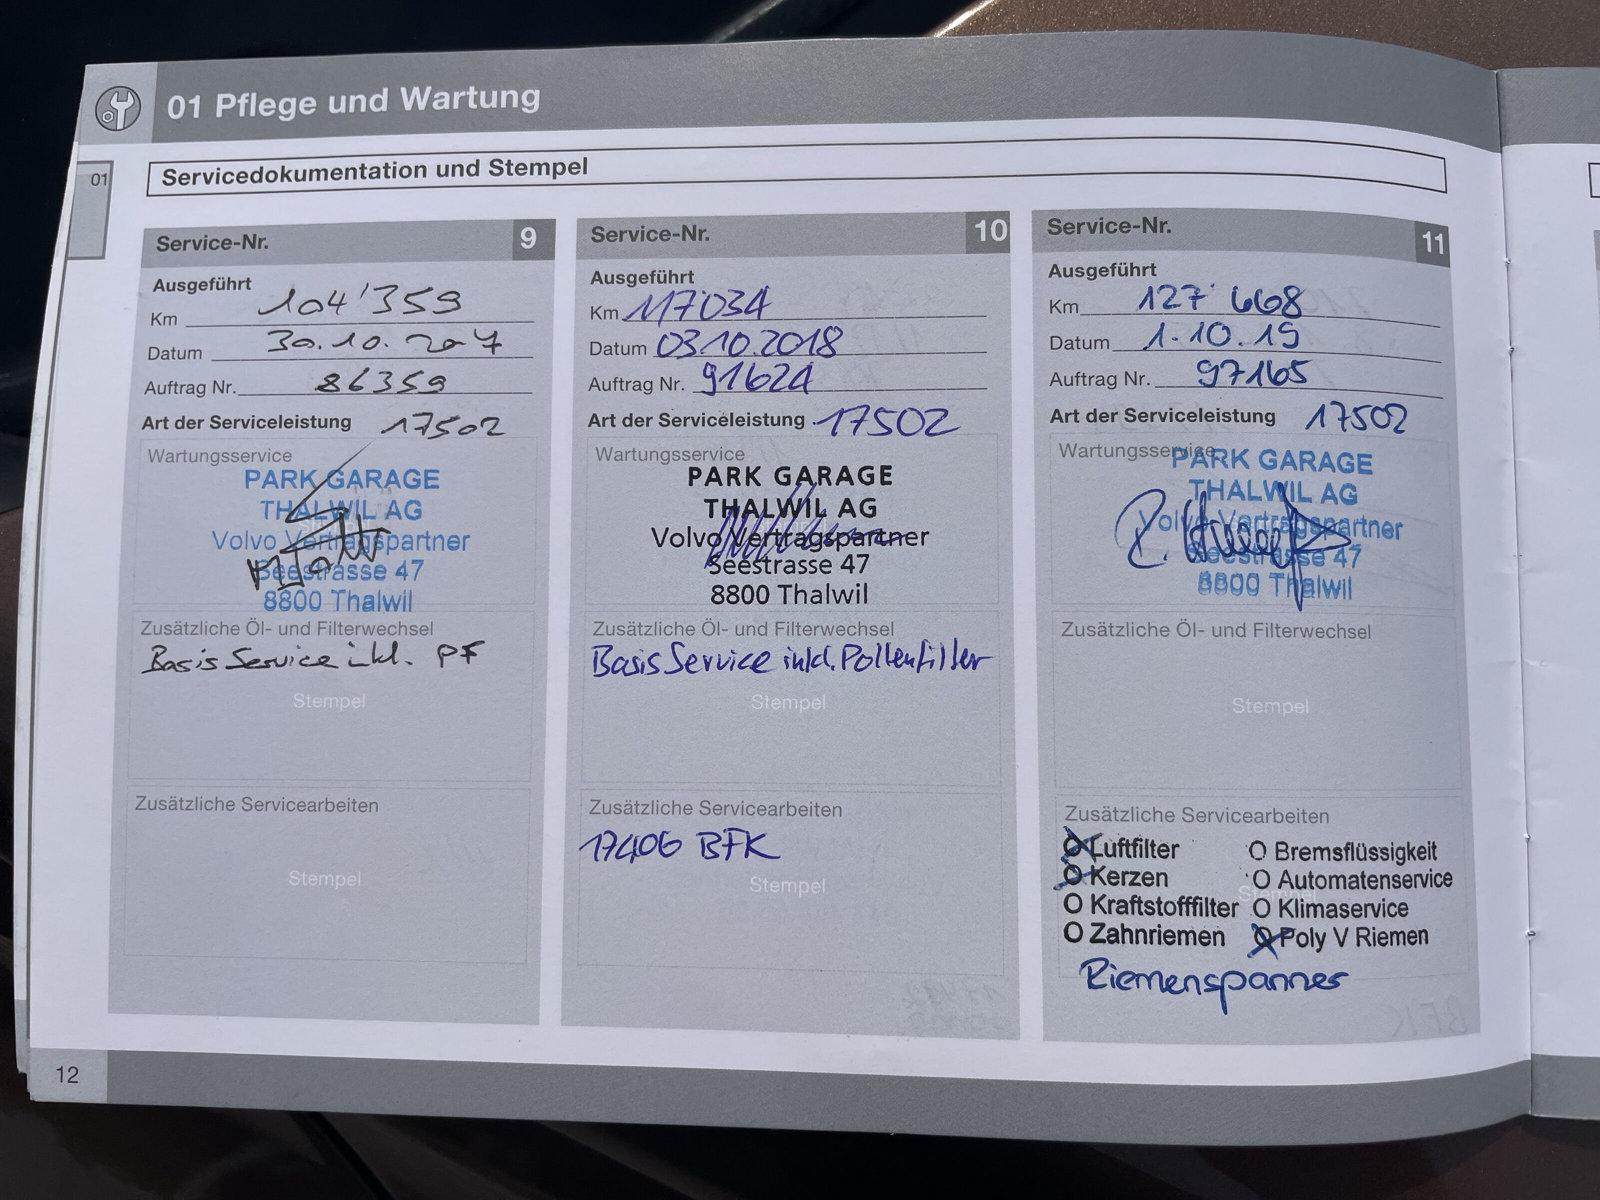 01 Pflege und Wartung
01
Servicedokumentation und Stempel
Service-Nr. 9
Ausgeführt
Km 104'359
Datum 30.10.2017
Auftrag Nr. 86359
Art der Serviceleistung 17502
Wartungsservice
PARK GARAGE
THALWIL AG
Volvo Vertragspartner
Seestrasse 47
8800 Thalwil
Zusätzliche Öl- und Filterwechsel
Basis Service inkl. PF
Stempel
Zusätzliche Servicearbeiten
Stempel
Service-Nr. 10
Ausgeführt
Km 117'034
Datum 03.10.2018
Auftrag Nr. 91624
Art der Serviceleistung 17502
Wartungsservice
PARK GARAGE
THALWIL AG
Volvo Vertragspartner
Seestrasse 47
8800 Thalwil
Zusätzliche Öl- und Filterwechsel
Basis Service inkl. Pollenfilter
Stempel
Zusätzliche Servicearbeiten
17406 BFK
Stempel
Service-Nr. 11
Ausgeführt
Km 127'668
Datum 1.10.19
Auftrag Nr. 97165
Art der Serviceleistung 17502
Wartungsservice
PARK GARAGE
THALWIL AG
Volvo Vertragspartner
Seestrasse 47
8800 Thalwil
Zusätzliche Öl- und Filterwechsel
Stempel
Zusätzliche Servicearbeiten
Luftfilter O Bremsflüssigkeit
Kerzen O Automatenservice
Stempel
O Kraftstofffilter O Klimaservice
O Zahnriemen Poly V Riemen
Riemenspanner
12